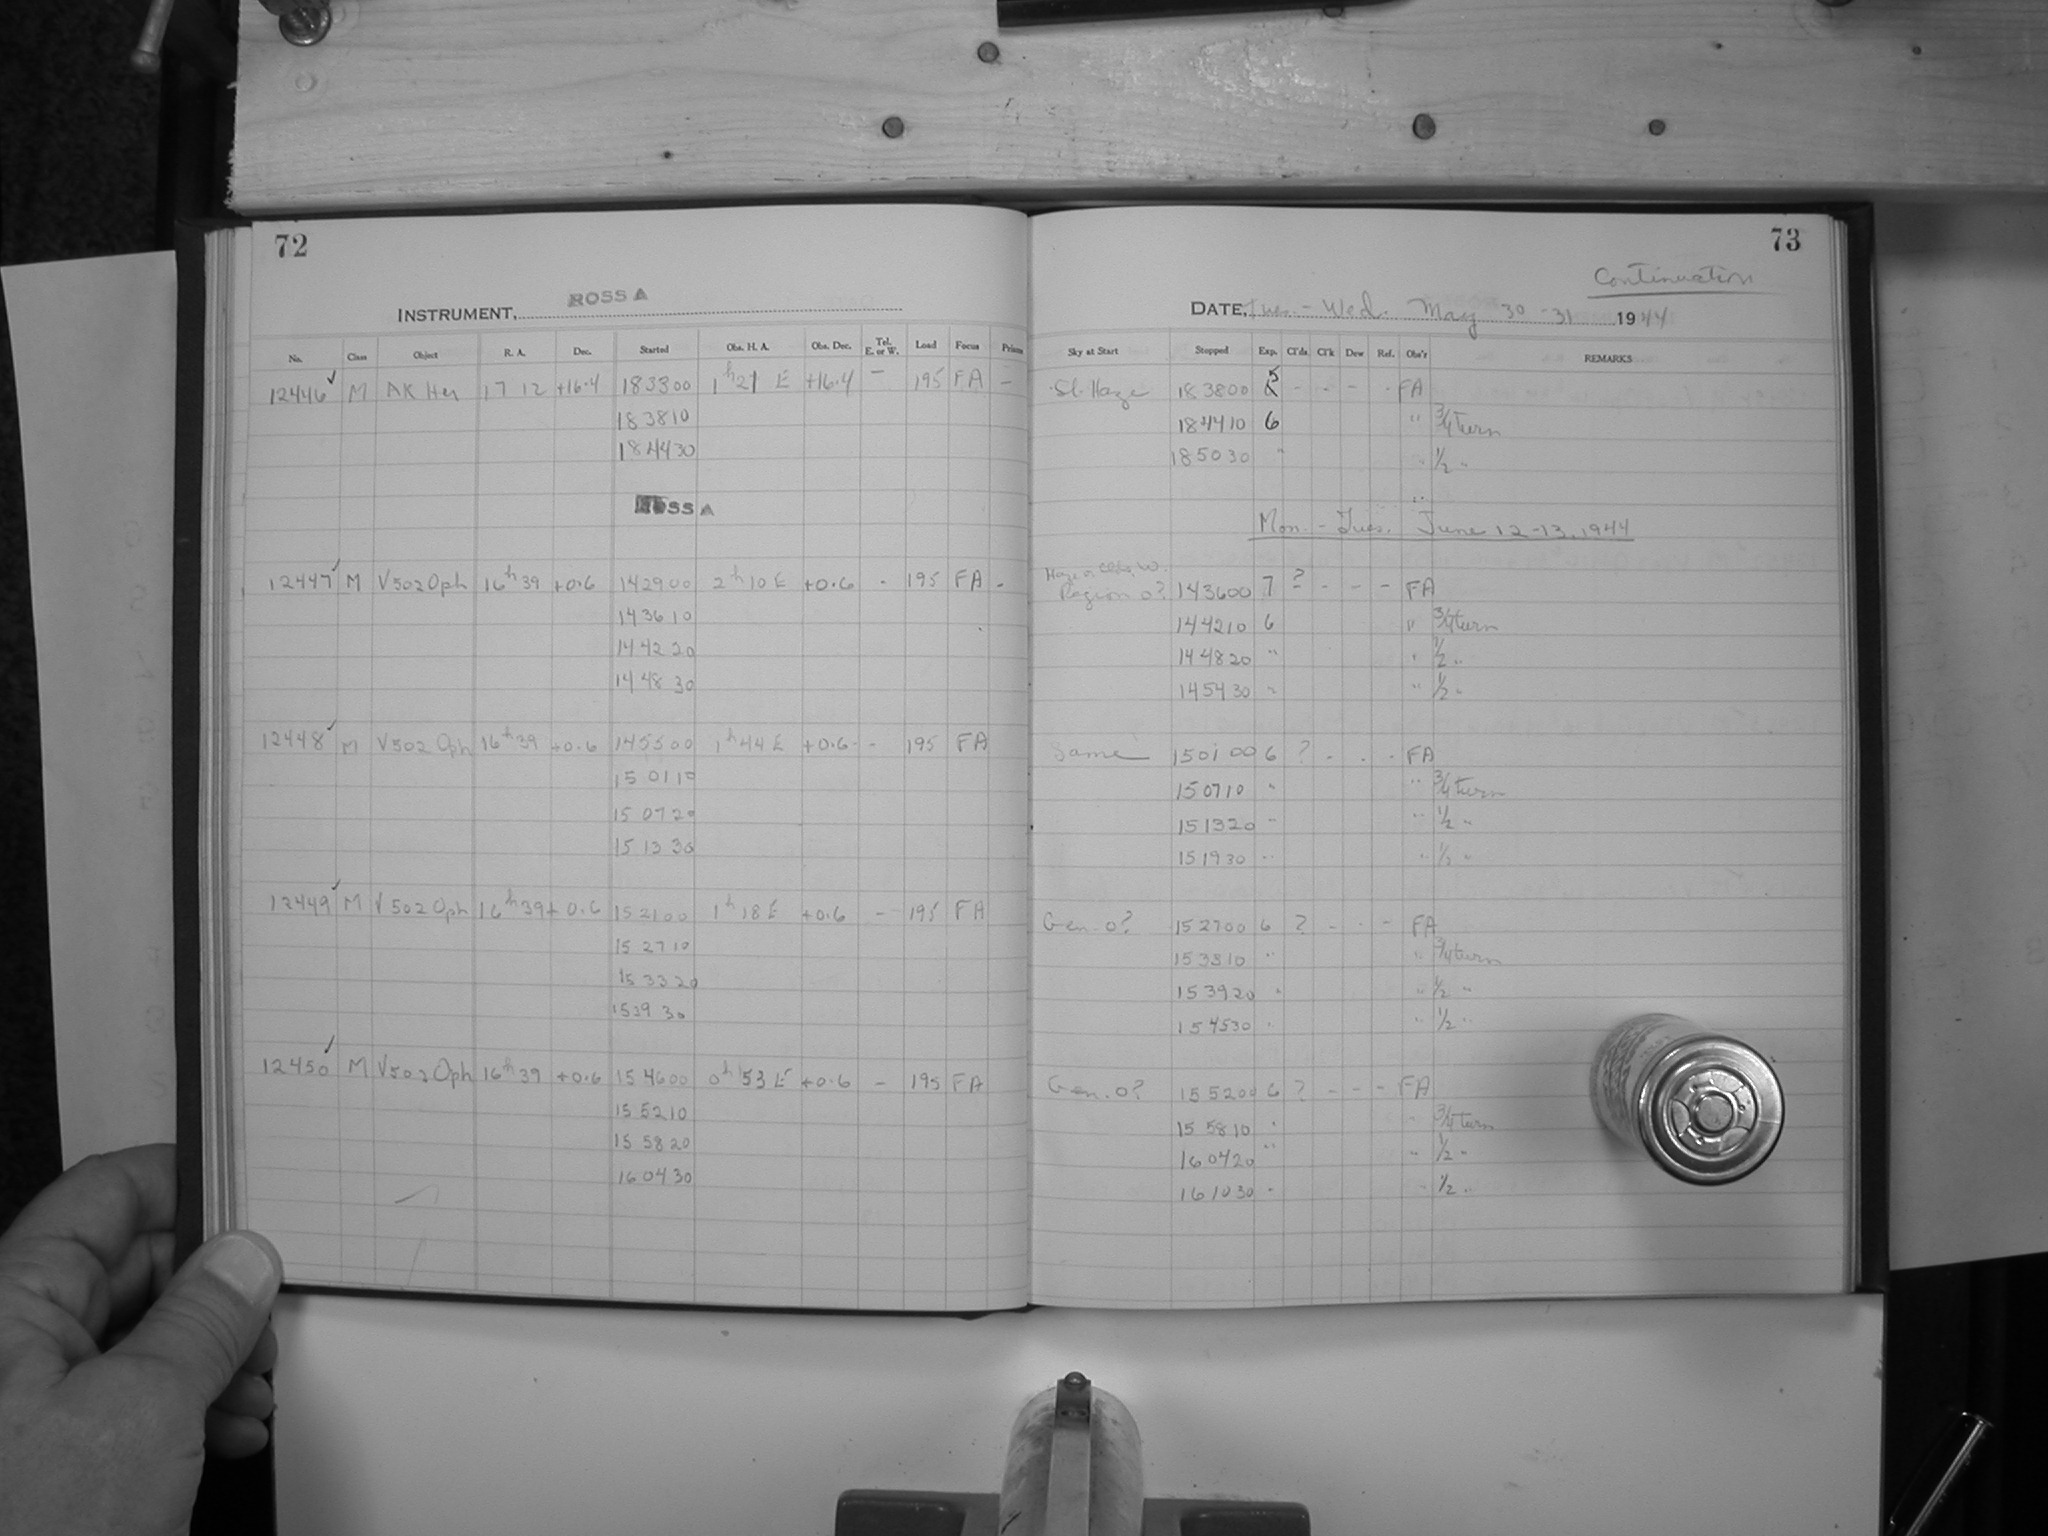 72
ROSS A
INSTRUMENT,
No. Class Object R. A. Dec. Started Obs. H. A. Obs. Dec. Tel. E. or W. Load Focus Prism
12446 ✓ M AK Her 17 12 +16.4 183300 1h 21 E +16.4 – 195 FA –
183810
184430
ROSS A
12447 ✓ M V502 Oph 16h 39 +0.6 142900 2h 10 E +0.6 - 195 FA -
143610
144220
144830
12448 ✓ M V502 Oph 16h 39 +0.6 145500 1h 44 E +0.6 - 195 FA
150110
150720
151330
12449 ✓ M V502 Oph 16h 39 +0.6 152100 1h 18 E +0.6 - 195 FA
152710
153320
153930
12450 ✓ M V502 Oph 16h 39 +0.6 154600 0h 53 E +0.6 – 195 FA
155210
155820
160430
73
Continuation
DATE, Tues. - Wed. May 30 - 31 1944
Sky at Start Stopped Exp. Cl'ds Cl'k Dew Ref. Obs'r REMARKS
Sl. Haze 183800 5 - - - - FA
184410 6 " 3/4 turn
185030 " " 1/2 "
Mon. - Tues. June 12-13, 1944
Haze or Clds. W.
Region 0? 143600 7 ? - - - FA
144210 6 " 3/4 turn
144820 " " 1/2 "
145430 " " 1/2 "
Same 150100 6 ? - - - FA
150710 " " 3/4 turn
151320 " " 1/2 "
151930 " " 1/2 "
Gen. 0? 152700 6 ? - - - FA
153310 " " 3/4 turn
153920 " " 1/2 "
154530 " " 1/2 "
Gen. 0? 155200 6 ? - - - FA
155810 " " 3/4 turn
160420 " " 1/2 "
161030 " " 1/2 "